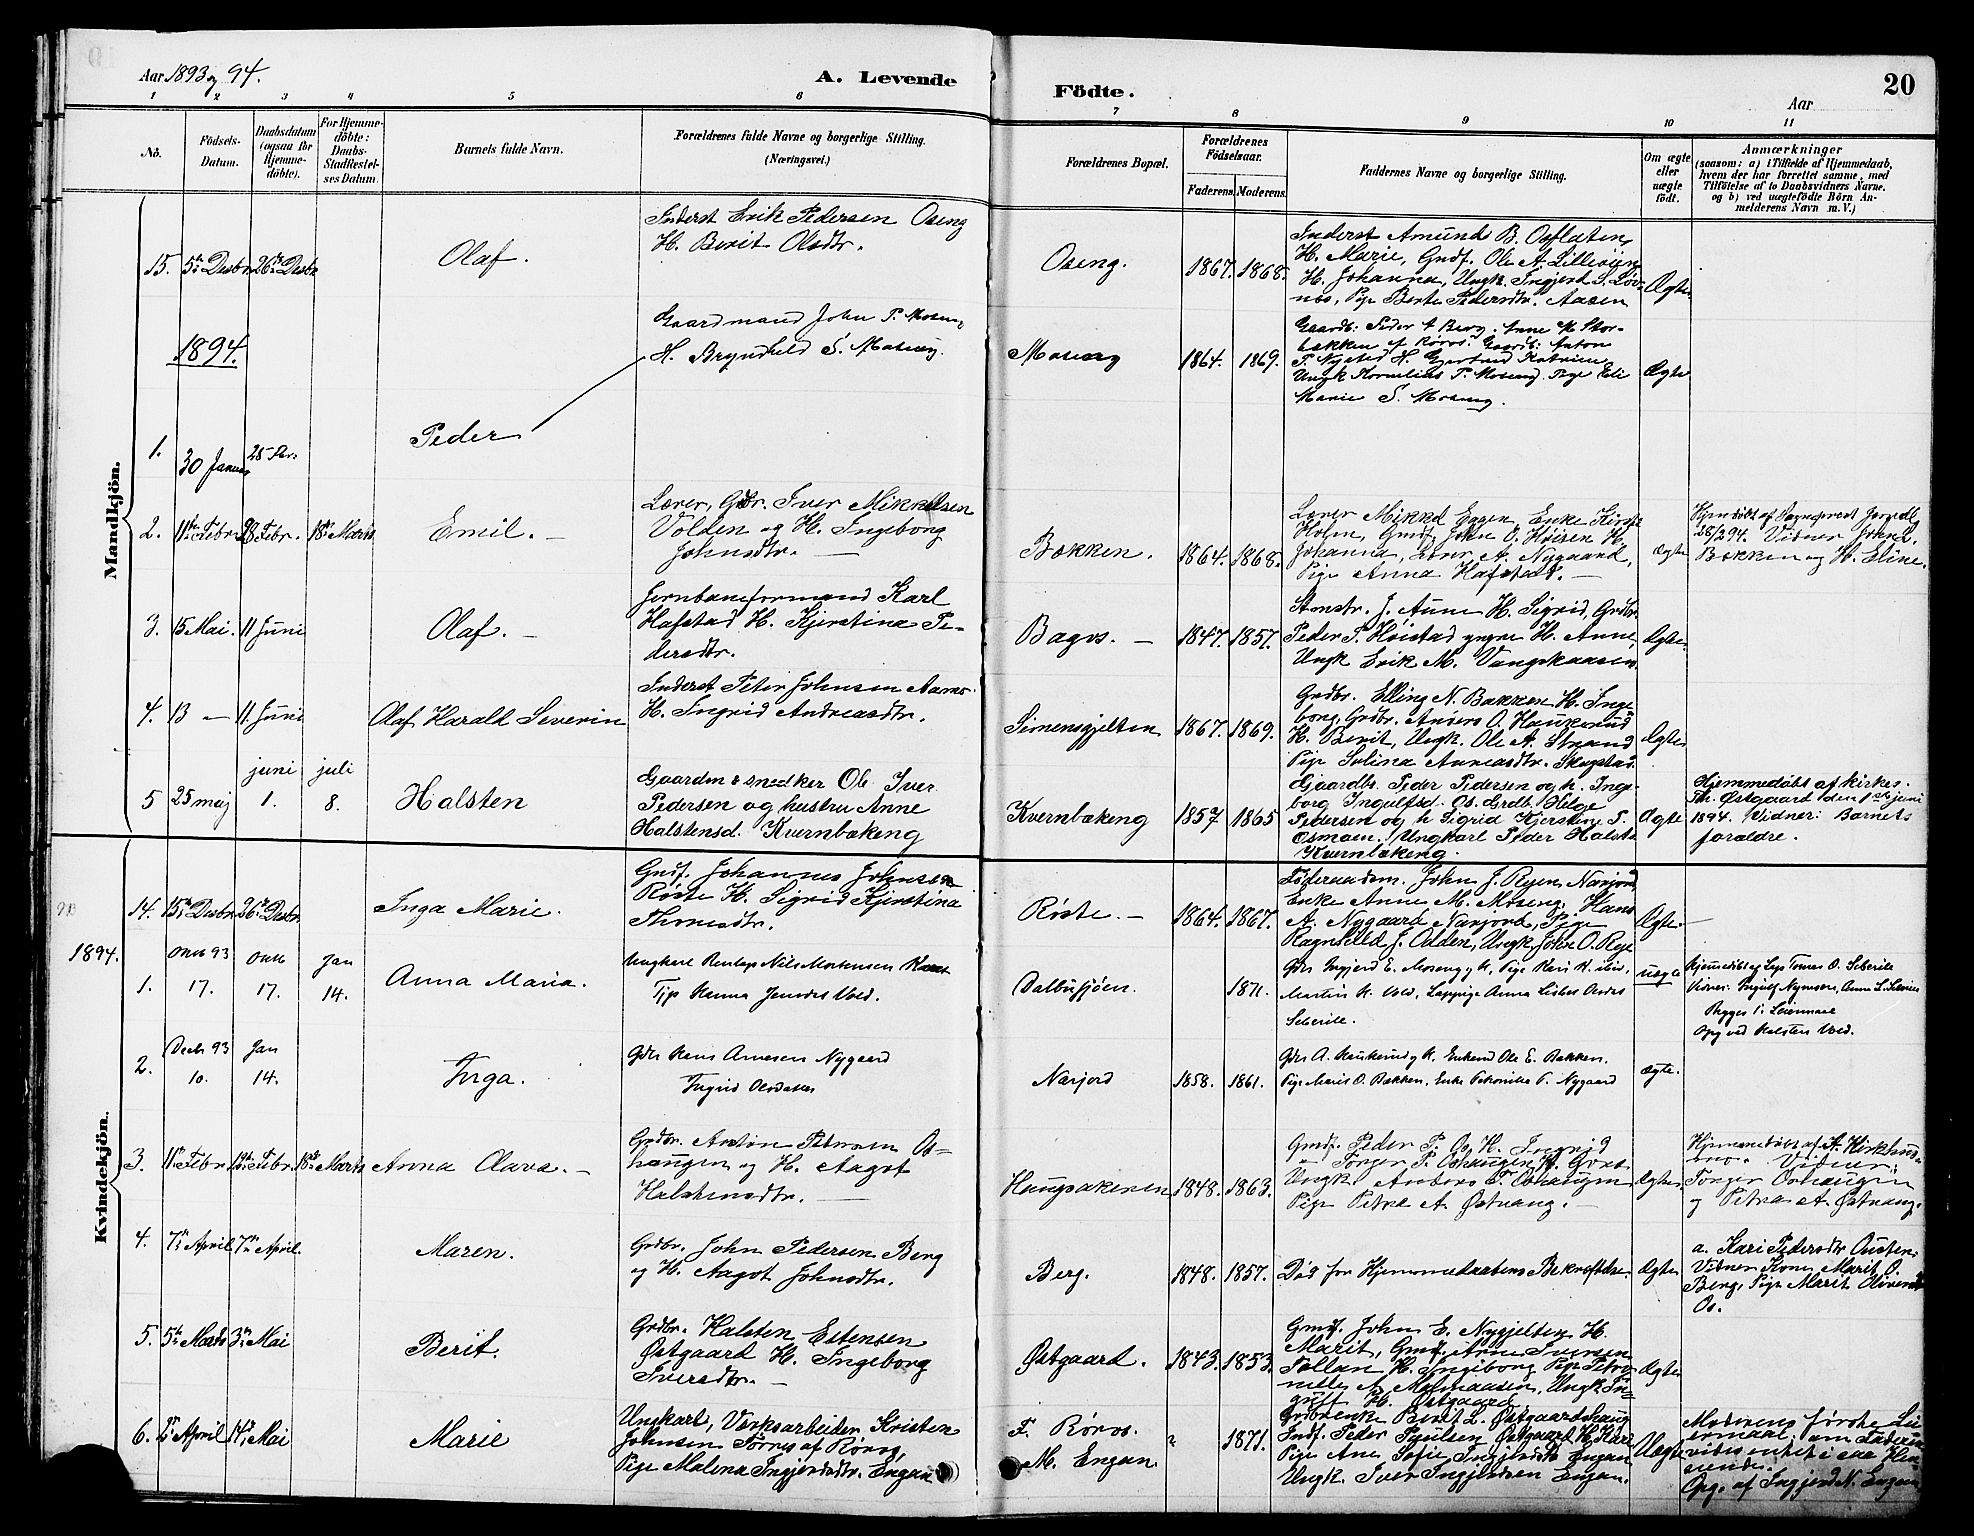 Aar 1893 og 94.
A. Levende
Födte.
Aar
20
1 2 3 4 5 6 7 8 9 10 11
No.
Födsels-Datum.
Daabsdatum (ogsaa for Hjemme-döbte).
For Hjemme-döbte: Daabs-Stadfæstel-ses Datum.
Barnets fulde Navn.
Forældrenes fulde Navne og borgerlige Stilling. (Næringsvei.)
Forældrenes Bopæl.
Forældrenes Födselsaar.
Faderens. Moderens.
Faddernes Navne og borgerlige Stilling.
Om ægte eller uægte födt.
Anmærkninger
(saasom: a) i Tilfælde af Hjemmedaab, hvem der har forrettet samme, med Tilföielse af to Daabsvidners Navne, og b) ved uægtefödte Börn An-melderens Navn m. V.)
Mandkjön.
15. 5te Desbr 26de Desbr Olaf.
Inderst Erik Pedersen Oseng
H. Berit Olsdtr.
Oseng. 1867. 1868.
Inderst Amund B. Osflaten,
H. Marie, Gmdf. Ole A. Lilleøien
H. Johanna, Ungk. Ingjerd S. Løv-
nes, Pige Berte Pedersdtr. Aasen
Ægte
1894.
1. 30 Januar 25 Febr. Peder
Gaardmand John P. Moseng
H. Bryndhild S. Moseng.
Moseng 1864. 1869.
Gaardb: Peder A Berg. Anne M Stor-
bekken af Röros. Gaardb: Anton
P. Nysted H. Gjertrud Katrine
Ungk Kornelius P. Moseng. Pige Eli
Marie S. Moseng.
Ægte
2. 11te Febr. 28 Febr. 18de Marts Emil. —
Lærer, Gbr. Iver Mikkelsen
Volden og H. Ingeborg
Johnsdtr. —
Bækken. 1864. 1868.
Lærer Mikkel Engen, Enke Kirsti
Holm, Gmdf. John O. Høisen H.
Johanna, Lærer A. Nygaard,
Pige Anna Hafstad. —
Ægte
Hjemdöbt af Sognepræst
28/2 94. Vidner John
Bækken og H. Eline.
3. 15 Mai. 11 Juni Olaf. —
Jernbaneformand Karl
Hafstad H. Kjerstina Pe-
dersdtr.
Bagos. — 1847. 1857.
J. Aune H. Sigrid, Grdbr.
Peder P. Høistad yngre H. Anne,
Ungk Erik M. Vangskaasen.
Ægte.
4. 13 — 11. Juni Olaf Harald Severin
Inderst Peter Johnsen Aamo
H. Ingrid Andreasdtr.
Simensgjelten 1867. 1869.
Grdbr. Elling N. Bakken H. Inge-
borg, Grdbr. Anders O. Haukerud
H. Berit, Ungk. Ole A. Strand
Pige Solina Andreasdtr. Skogstad.
Ægte
5 25 maj juni 1. juli 8. Halsten
Gaardm & snedker Ole Iver
Pedersen og hustru Anne
Halstensd. Kvernbækeng
Kvernbækeng 1857 1865
Gjaardb. Peder Pedersen og h. Inge-
borg Ingulfsd. Os. Grdb. Helge
Pedersen og h Sigrid Kjerstine P.
Osmoen. Ungkarl Peder Halsts
Kvernbækeng.
Ægte
Hjemmedöbt af kirkes.
Th. Østgaard den 1ste juni
1894. Vidner: Barnets
forældre.
Kvindekjön.
14. 15de Desbr. 26de Desbr. Inga Marie.
Gmdf. Johannes Johnsen
Røste H. Sigrid Kjerstina
Thoresdtr.
Røste. — 1864. 1867.
Föderaadsm. John J. Ryen, Narjord
Enke Anne M. Moseng, Hans
A. Nygaard Narjord, Pige
Ragnhild J. Odden, Ungk. John O. Rye
Ægte. —
1894.
1. 93 17. 17. Jan 14. Anna Maria.
Ungkarl Renlap Nils Mortensen
Pige Hanna Jensdtr Vold.
Dalbusjöen. 1871.
Gdr Ingjerd E. Moseng og h, Pige Kari H. ibid.
Martin H. Vold, Lappige Anna Lisbet
uægte
Hjemedöbt af Lap Tomas O.
Begges 1: Leiermaal
Opg ved Halsten Vold.
2. Decb 93 10. Jan 14. Inga.
Gdr Hans Arnesen Nygaard
Ingrid Olsdatter
Narjord 1858. 1861.
Gdr A. Haukerud og h. Enkemd Ole E. Bakken.
Pige Marit O. Bakken, Enke Petronille P. Nygaard
ægte.
3. 11te Febr. 14de Febr. 18de Marts Anna Olava. —
Grdbr. Anton Petersen Os-
haugen og H. Aagot
Halstensdtr. —
Haugsakeren 1848. 1863.
Gmdf. Peder P. Os H. Ingrid
— Torger P. Oshaugen H. Goro
Ungk. Anders T. Oshaugen
Pige Petra A. Østvang. —
Ægte
Hjemmedöbt af A. Kirkhus-
mo. Vidner:
Torger Oshaugen
og Petra A. Østvang.
4. 7de April 7de April. Maren.
Grdbr. John Pedersen Berg
og H. Aagot Johnsdtr.
Berg. 1848. 1857.
Död før Hjemmedaabens Bekræftelse.
Ægte
a. Kari Pedersdtr Ousten.
Vidner Kone Marit O.
Berg, Pige Marit Oliversdtr
Os.
5. 5te Marts 3de Mai Berit.
Grdbr. Halsten Estensen
Østgaard H. Ingeborg
Iversdtr. —
Østgaard. 1843. 1853.
Gmdf. John E. Nygjelten H.
Marit, Gmdf. Arne Iversen
Tallan H. Ingeborg Pige Petro-
nille A. Malmaasen, Ungk. In-
gulf H. Østgaard
Ægte
6. 2de April 14de Mai Marie
Ungkarl, Verksarbeider Kristen
Johnsen Torres af Röros,
Pige Malena Ingjerdsdtr. Engan
F. Röros.
M. Engan.
" 1871.
Grdbrenke Berit L. Østgaardshaug
Indf. Peder Poulsen Østgaard H. Kari
Pige Ane Sofie Ingjerdsdtr Engan
Ungk. Iver Ingjerdsen Engan.
Uægte
Moderens første Lei-
ermaal; om Faderen
vides intet i saa Hen-
seende.
Opg. af Ingjerd N. Engan